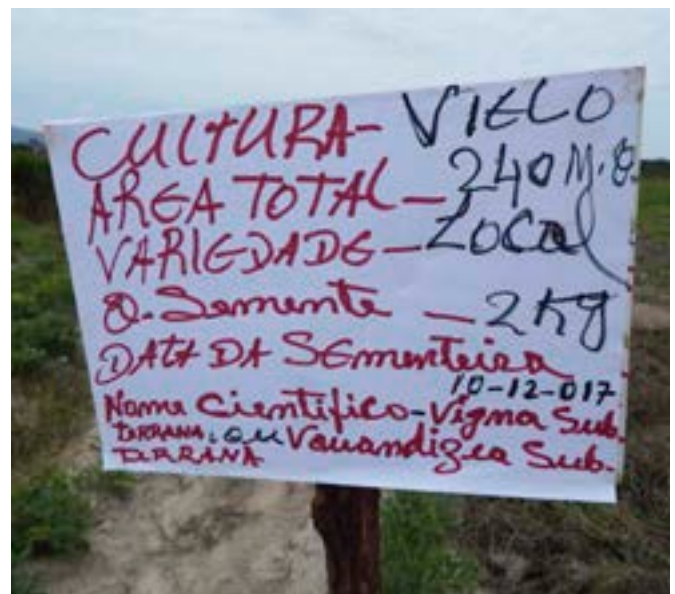 CULTURA- VIELO
AREA TOTAL - 240 M.Q.
VARIEDADE - Local
Q. Semente - 2 Kg
DATA DA SEmenteira
10-12-017
Nome Cientifico - Vigna Sub.
TERRANA. ou Vauandizea Sub.
TERRANA